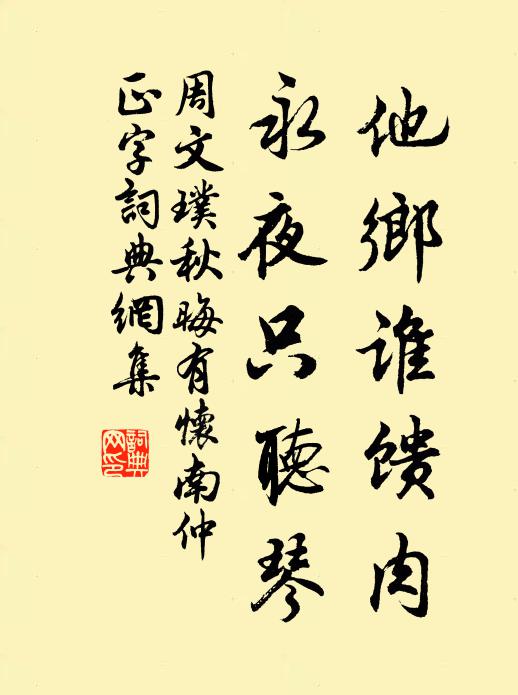 他鄉谁馈肉
永夜只聽琴
周文璞秋晦有懷南仲
正字詞典網集
詞典
网印